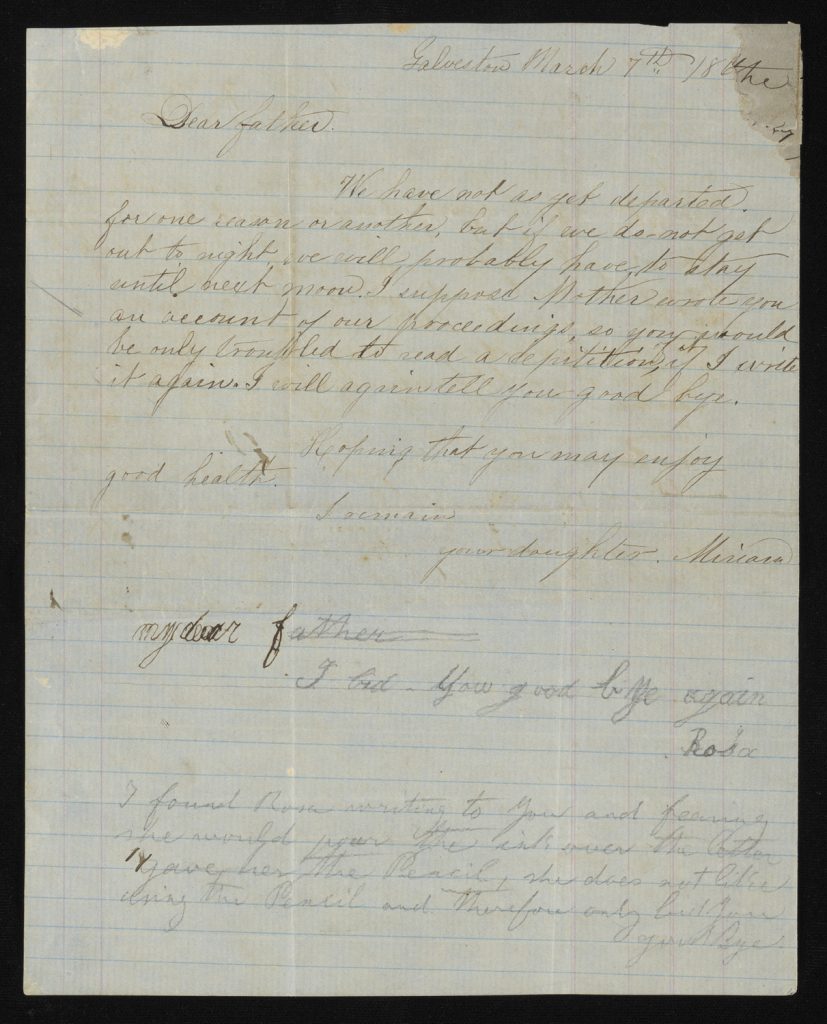 Galveston March 7th 186
the
Dear father.
We have not as yet departed.
for one reason or another, but if we do not get
out to night, we will probably have to stay
until next moon. I suppose Mother wrote you
an account of our proceedings, so you would
be only troubled to read a repitition, if I write
it again. I will again tell you good bye.
Hoping that you may enjoy
good health.
I remain
your daughter. Miriam
my dear father
I bid you good bye again
Rosa
I found Rosa writing to You and fearing
she would pour the ink over the letter
I gave her the Pencil, she does not like
using the Pencil and therefore only bid You
good Bye.